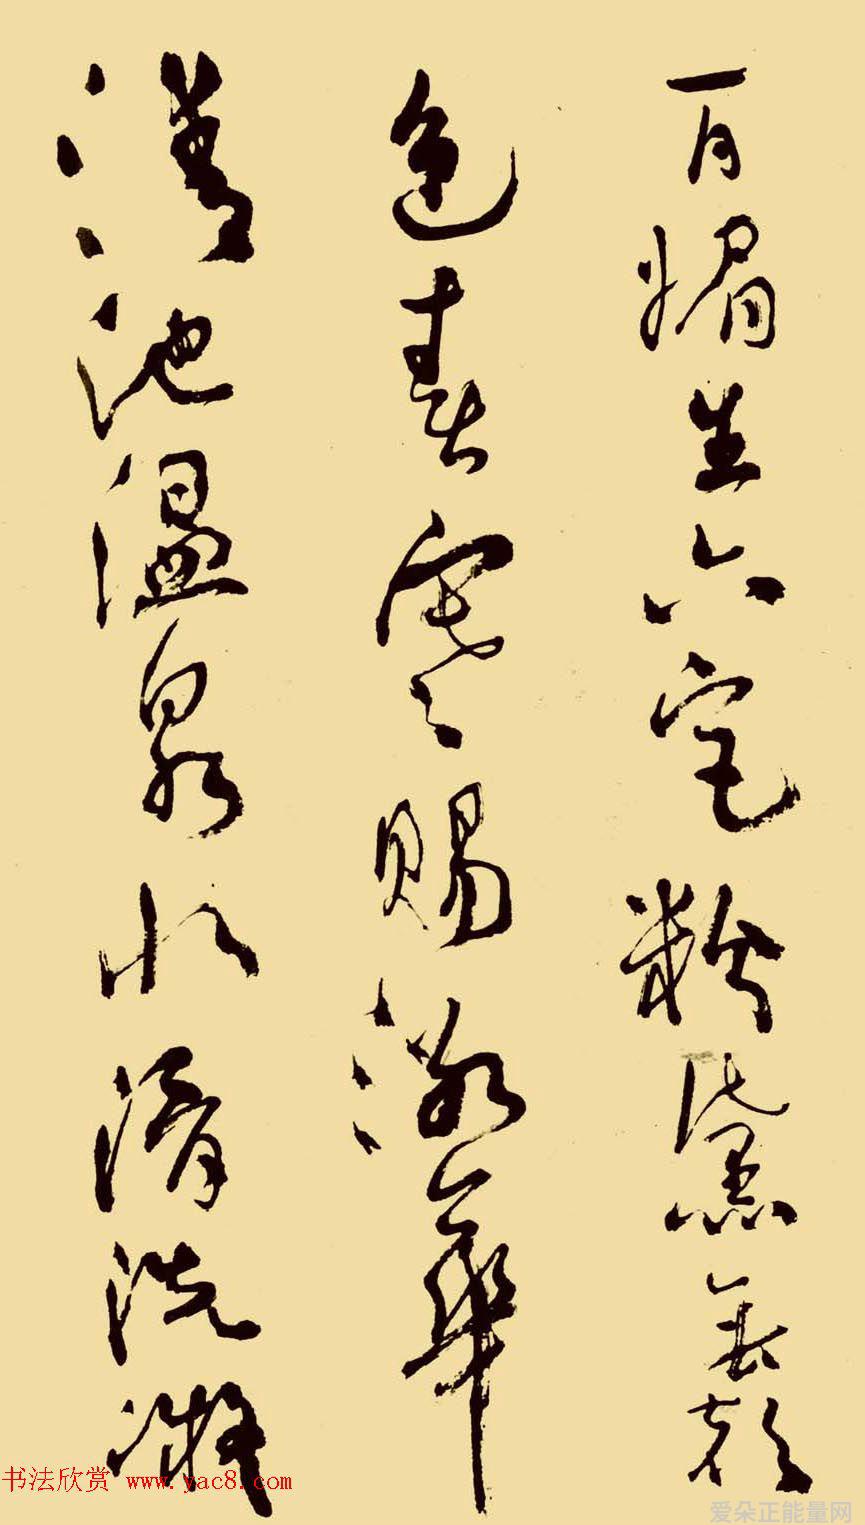 百媚生六宮粉黛無顏
色春寒賜浴華
清池温泉水滑洗凝
书法欣赏 www.yac8.com
爱朵正能量网